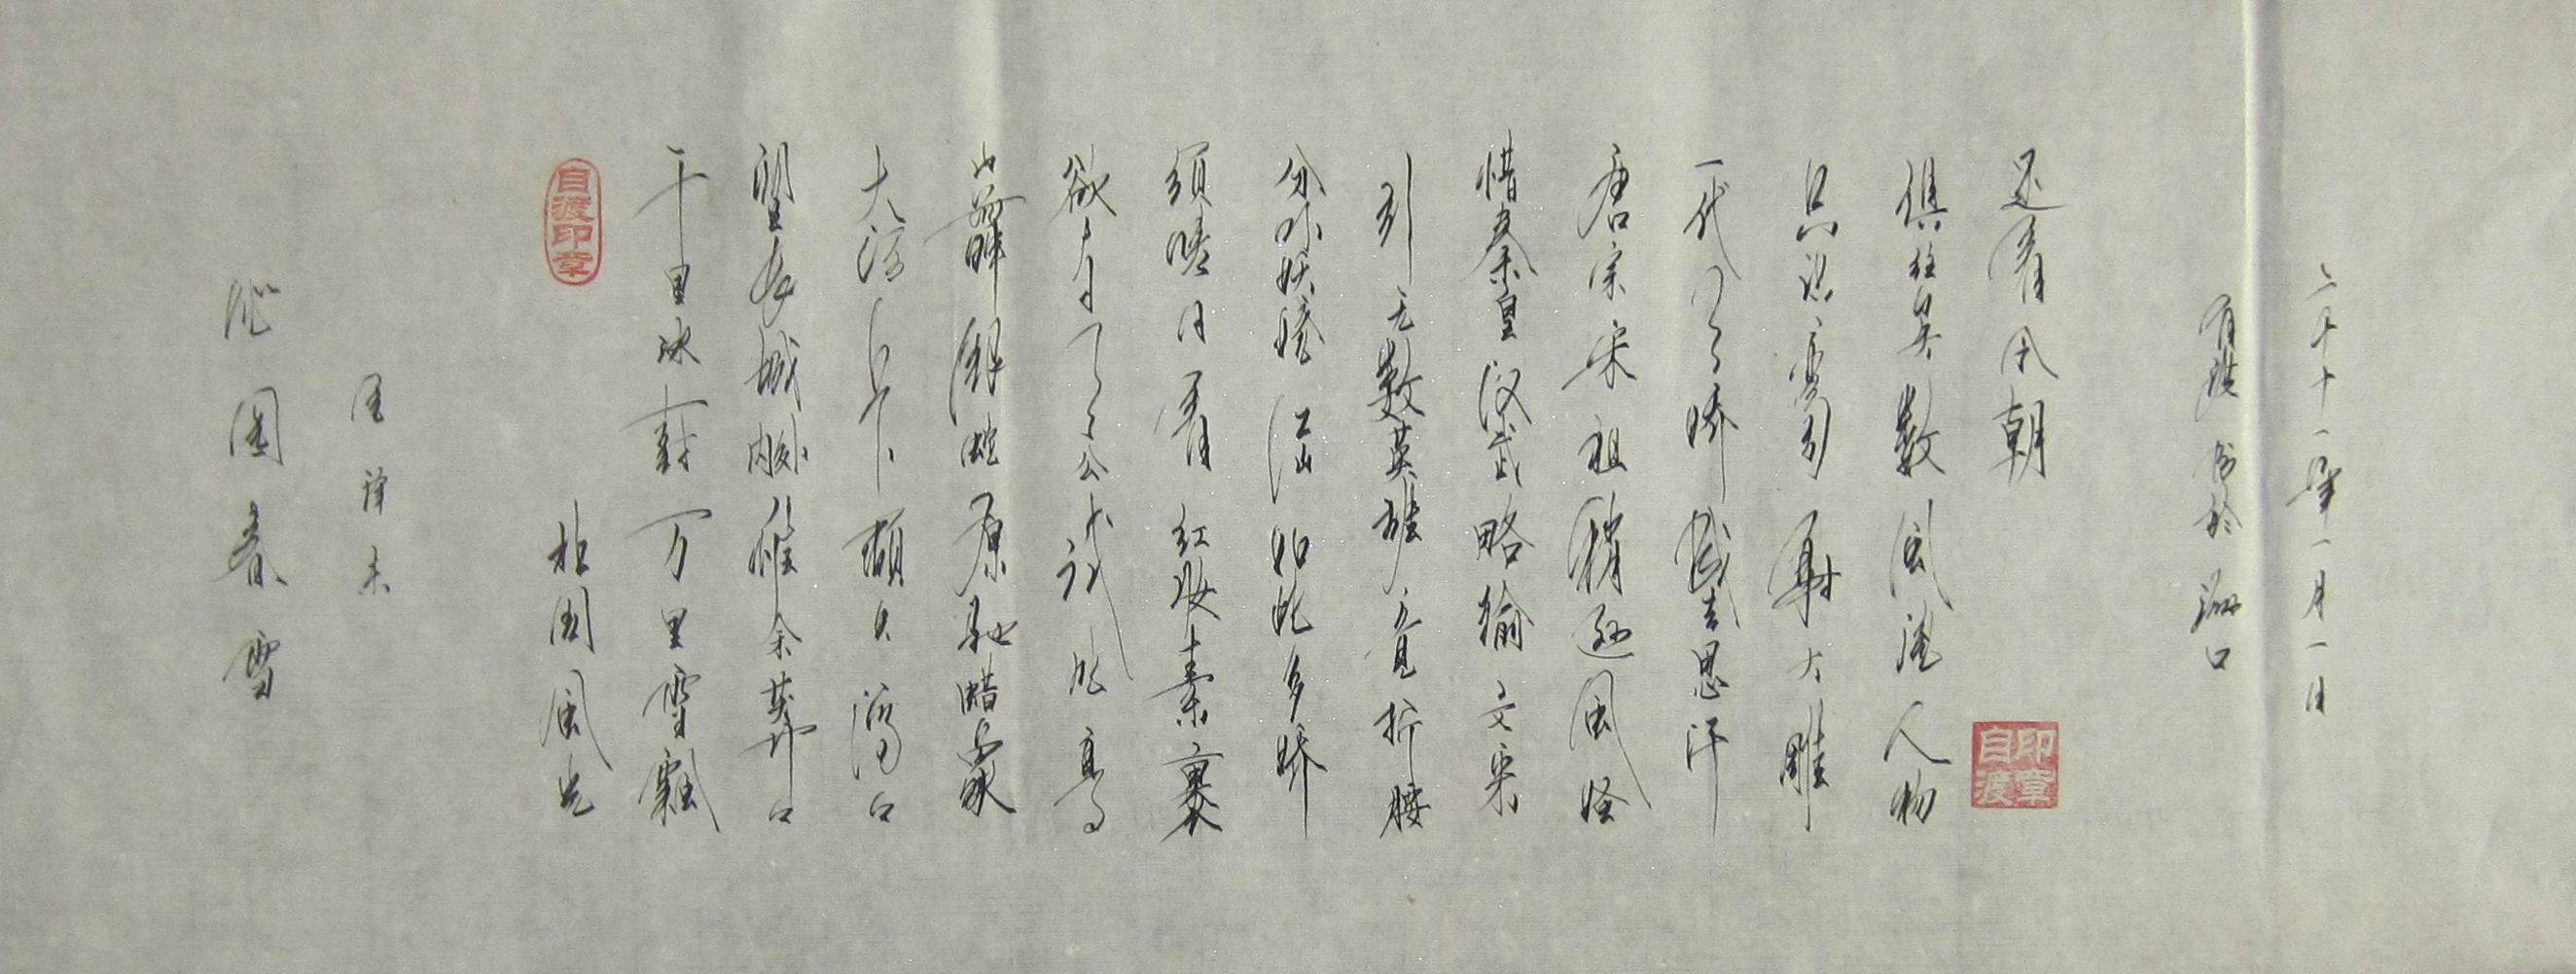 沁園春雪
毛泽东
自渡印章
北国风光
千里冰封万里雪飘
望长城内外惟余莽々
大河上下顿失滔々
山舞银蛇原驰蜡象
欲与天公试比高
须晴日看红妆素裹
分外妖娆江山如此多娇
引无数英雄竞折腰
惜秦皇汉武略输文采
唐宗宋祖稍逊风骚
一代天骄成吉思汗
只识弯弓射大雕
俱往矣数风流人物
还看今朝
自渡印章
自渡书於海口
二千十一年一月一日